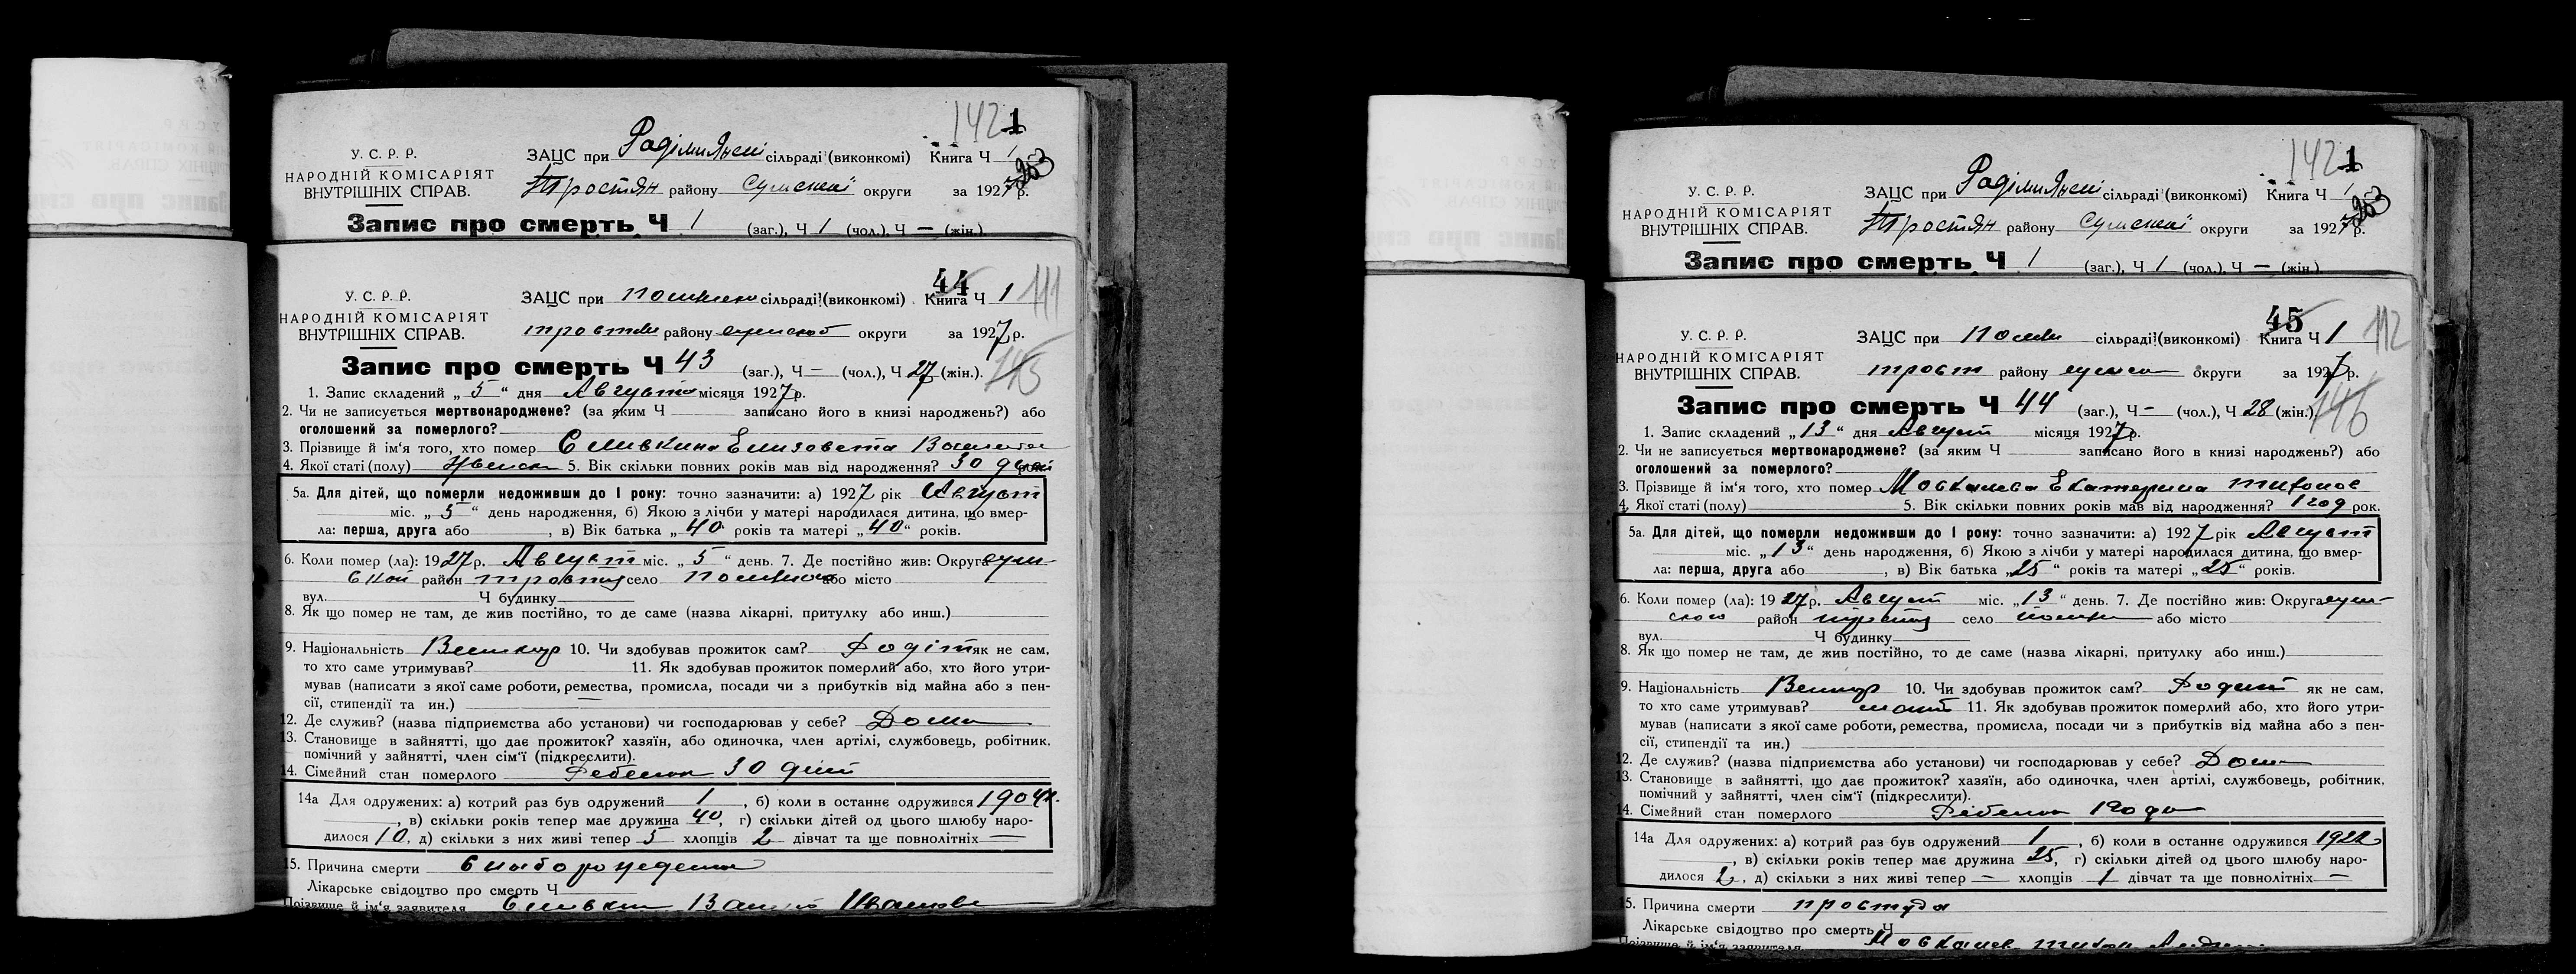 142 1
У. С. Р. Р.
НАРОДНІЙ КОМІСАРІЯТ
ВНУТРІШНІХ СПРАВ.
ЗАЦС при сільраді (виконкомі) Книга Ч 1
Тростян району Сумської округи за 1927 р. 203
Запис про смерть Ч 1 (заг.), Ч 1 (чол.), Ч — (жін.)
44 111
У. С. Р. Р.
НАРОДНІЙ КОМІСАРІЯТ
ВНУТРІШНІХ СПРАВ.
ЗАЦС при сільраді (виконкомі) Книга Ч 1
району сумской округи за 1927 р.
145
Запис про смерть Ч 43 (заг.), Ч — (чол.), Ч 27 (жін.).
1. Запис складений „ 5 “ дня Августа місяця 1927 р.
2. Чи не записується мертвонароджене? (за яким Ч записано його в книзі народжень?) або
оголошений за померлого?
3. Прізвище й ім‘я того, хто помер Сливкина Елизовета
4. Якої статі (полу) Женск 5. Вік скільки повних років мав від народження? 30 дней
5а. Для дітей, що померли недоживши до 1 року: точно зазначити: а) 1927 рік Август
міс. „ 5 “ день народження, б) Якою з лічби у матері народилася дитина, що вмер-
ла: перша, друга або , в) Вік батька „ 40 “ років та матері „ 40 “ років.
6. Коли помер (ла): 1927 р. Август міс. „ 5 “ день. 7. Де постійно жив: Округа сум-
ской район село або місто
вул. Ч будинку
8. Як що помер не там, де жив постійно, то де саме (назва лікарні, притулку або инш.)
9. Національність 10. Чи здобував прожиток сам? Родит як не сам,
то хто саме утримував? 11. Як здобував прожиток померлий або, хто його утри-
мував (написати з якої саме роботи, ремества, промисла, посади чи з прибутків від майна або з пен-
сії, стипендії та ин.) —
12. Де служив? (назва підприємства або установи) чи господарював у себе? Дома
13. Становище в зайнятті, що дає прожиток? хазяїн, або одиночка, член артілі, службовець, робітник,
помічний у зайнятті, член сім‘ї (підкреслити).
14. Сімейний стан померлого Ребенок 30 дней
14а Для одружених: а) котрий раз був одружений 1 , б) коли в останнє одружився 1904 г.
, в) скільки років тепер має дружина 40, г) скільки дітей од цього шлюбу наро-
дилося 10, д) скільки з них живі тепер 5 хлопців 2 дівчат та ще повнолітніх —
15. Причина смерти слаборождения
Лікарське свідоцтво про смерть Ч
Прізвище й ім‘я заявителя
142 1
У. С. Р. Р.
НАРОДНІЙ КОМІСАРІЯТ
ВНУТРІШНІХ СПРАВ.
ЗАЦС при сільраді (виконкомі) Книга Ч 1
Тростян району Сумської округи за 1927 р. 203
Запис про смерть Ч 1 (заг.), Ч 1 (чол.), Ч — (жін.)
45 112
У. С. Р. Р.
НАРОДНІЙ КОМІСАРІЯТ
ВНУТРІШНІХ СПРАВ.
ЗАЦС при сільраді (виконкомі) Книга Ч 1
трост району округи за 1927 р.
146
Запис про смерть Ч 44 (заг.), Ч - (чол.), Ч 28 (жін.).
1. Запис складений „ 13 “ дня Август місяця 1927 р.
2. Чи не записується мертвонароджене? (за яким Ч записано його в книзі народжень?) або
оголошений за померлого?
3. Прізвище й ім‘я того, хто помер Москалева Екатерина Тихонов
4. Якої статі (полу) 5. Вік скільки повних років мав від народження? 1 год рок.
5а. Для дітей, що померли недоживши до 1 року: точно зазначити: а) 1927 рік Август
міс. „ 13 “ день народження, б) Якою з лічби у матері народилася дитина, що вмер-
ла: перша, друга або , в) Вік батька „ 25 “ років та матері „ 25 “ років.
6. Коли помер (ла): 1927 р. Август міс. „ 13 “ день. 7. Де постійно жив: Округа сум-
ского район село або місто
вул. Ч будинку
8. Як що помер не там, де жив постійно, то де саме (назва лікарні, притулку або инш.)
9. Національність 10. Чи здобував прожиток сам? Родит як не сам,
то хто саме утримував? 11. Як здобував прожиток померлий або, хто його утри-
мував (написати з якої саме роботи, ремества, промисла, посади чи з прибутків від майна або з пен-
сії, стипендії та ин.)
12. Де служив? (назва підприємства або установи) чи господарював у себе? Дома
13. Становище в зайнятті, що дає прожиток? хазяїн, або одиночка, член артілі, службовець, робітник,
помічний у зайнятті, член сім‘ї (підкреслити).
14. Сімейний стан померлого Ребенок 1 года
14а Для одружених: а) котрий раз був одружений 1 , б) коли в останнє одружився 1922
, в) скільки років тепер має дружина 25, г) скільки дітей од цього шлюбу наро-
дилося 2, д) скільки з них живі тепер — хлопців 1 дівчат та ще повнолітніх —
15. Причина смерти простуда
Лікарське свідоцтво про смерть Ч
Прізвище й ім‘я заявителя Москалев Тихон